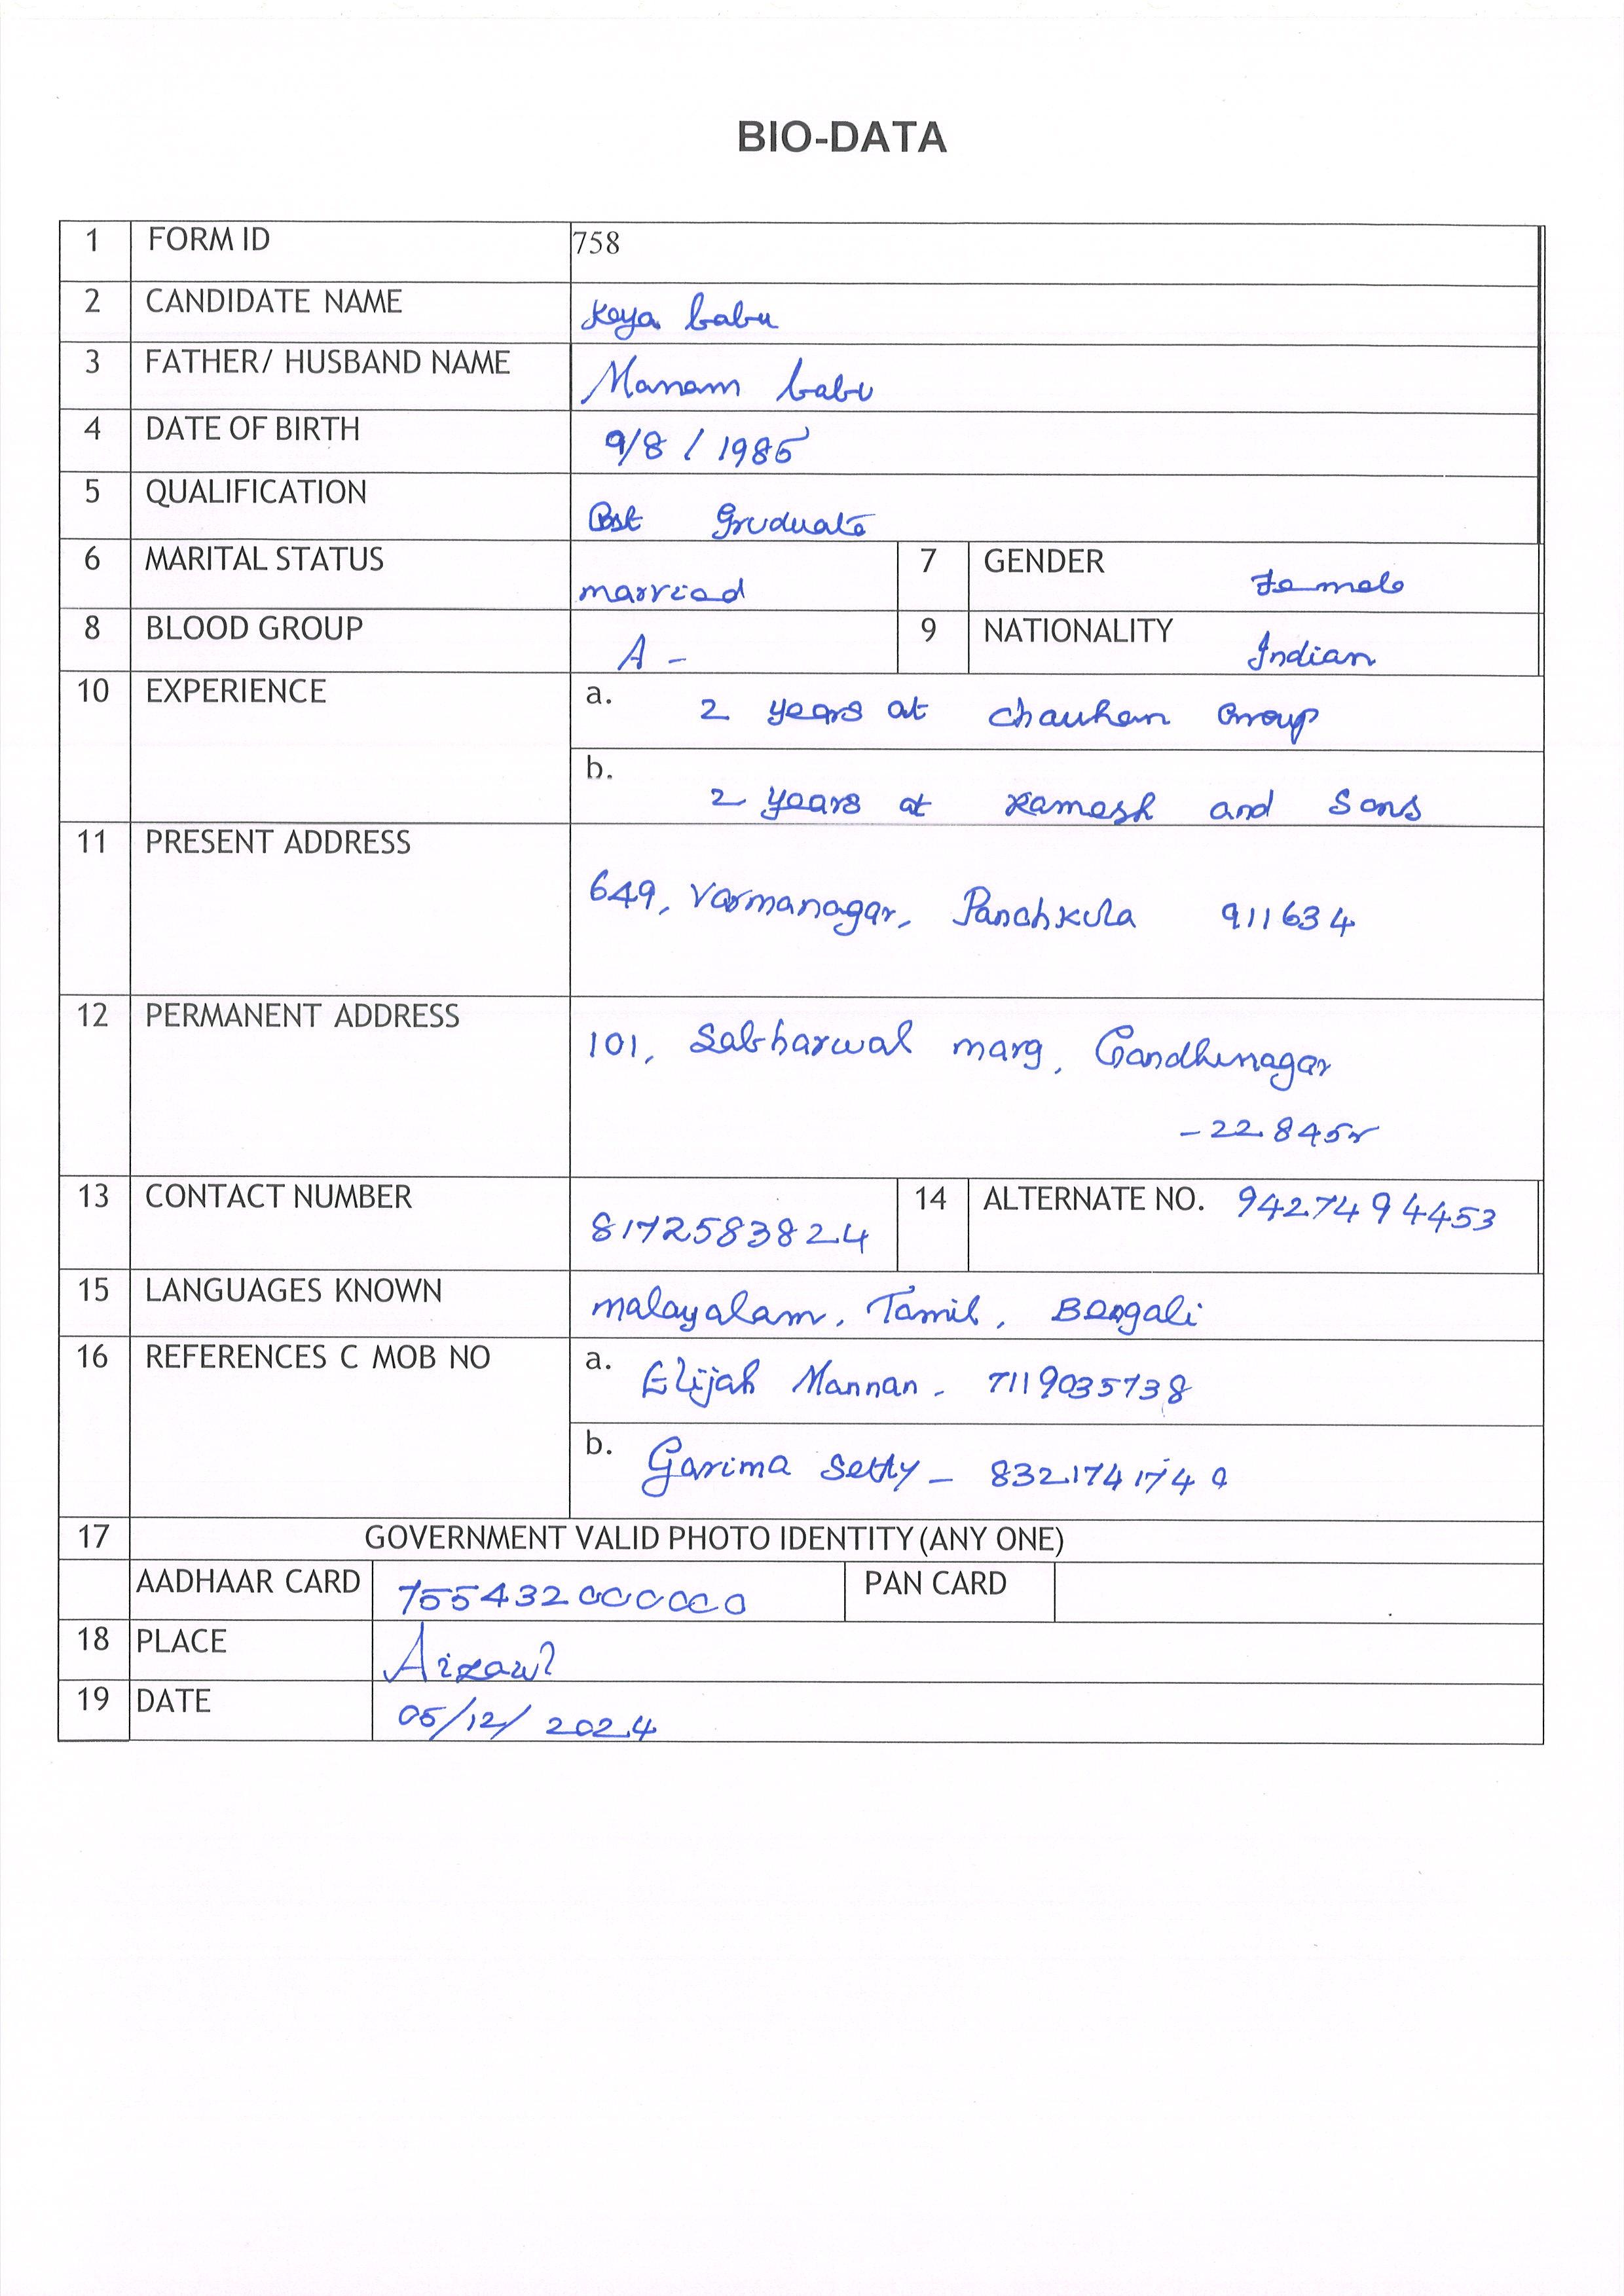 BIO-DATA
1 FORM ID 758
2 CANDIDATE NAME Keya babu
3 FATHER/ HUSBAND NAME Manam babu
4 DATE OF BIRTH 9/8 / 1985
5 QUALIFICATION Post Graduate
6 MARITAL STATUS married 7 GENDER Female
8 BLOOD GROUP A - 9 NATIONALITY Indian
10 EXPERIENCE a. 2 years at chauhan Group
b. 2 years at Ramesh and Sons
11 PRESENT ADDRESS
649, Varmanagar, Panchkula 911634
12 PERMANENT ADDRESS
101, Sabharwal marg, Gandhinagar
13 CONTACT NUMBER 8172583824 14 ALTERNATE NO. 9427494453
15 LANGUAGES KNOWN malayalam, Tamil, Bengali
16 REFERENCES C MOB NO a. Elijah Mannan - 7119035738
b. Garima Setty -
17 GOVERNMENT VALID PHOTO IDENTITY(ANY ONE)
AADHAAR CARD 755432000000 PAN CARD
18 PLACE Aizawl
19 DATE 05/12/ 2024